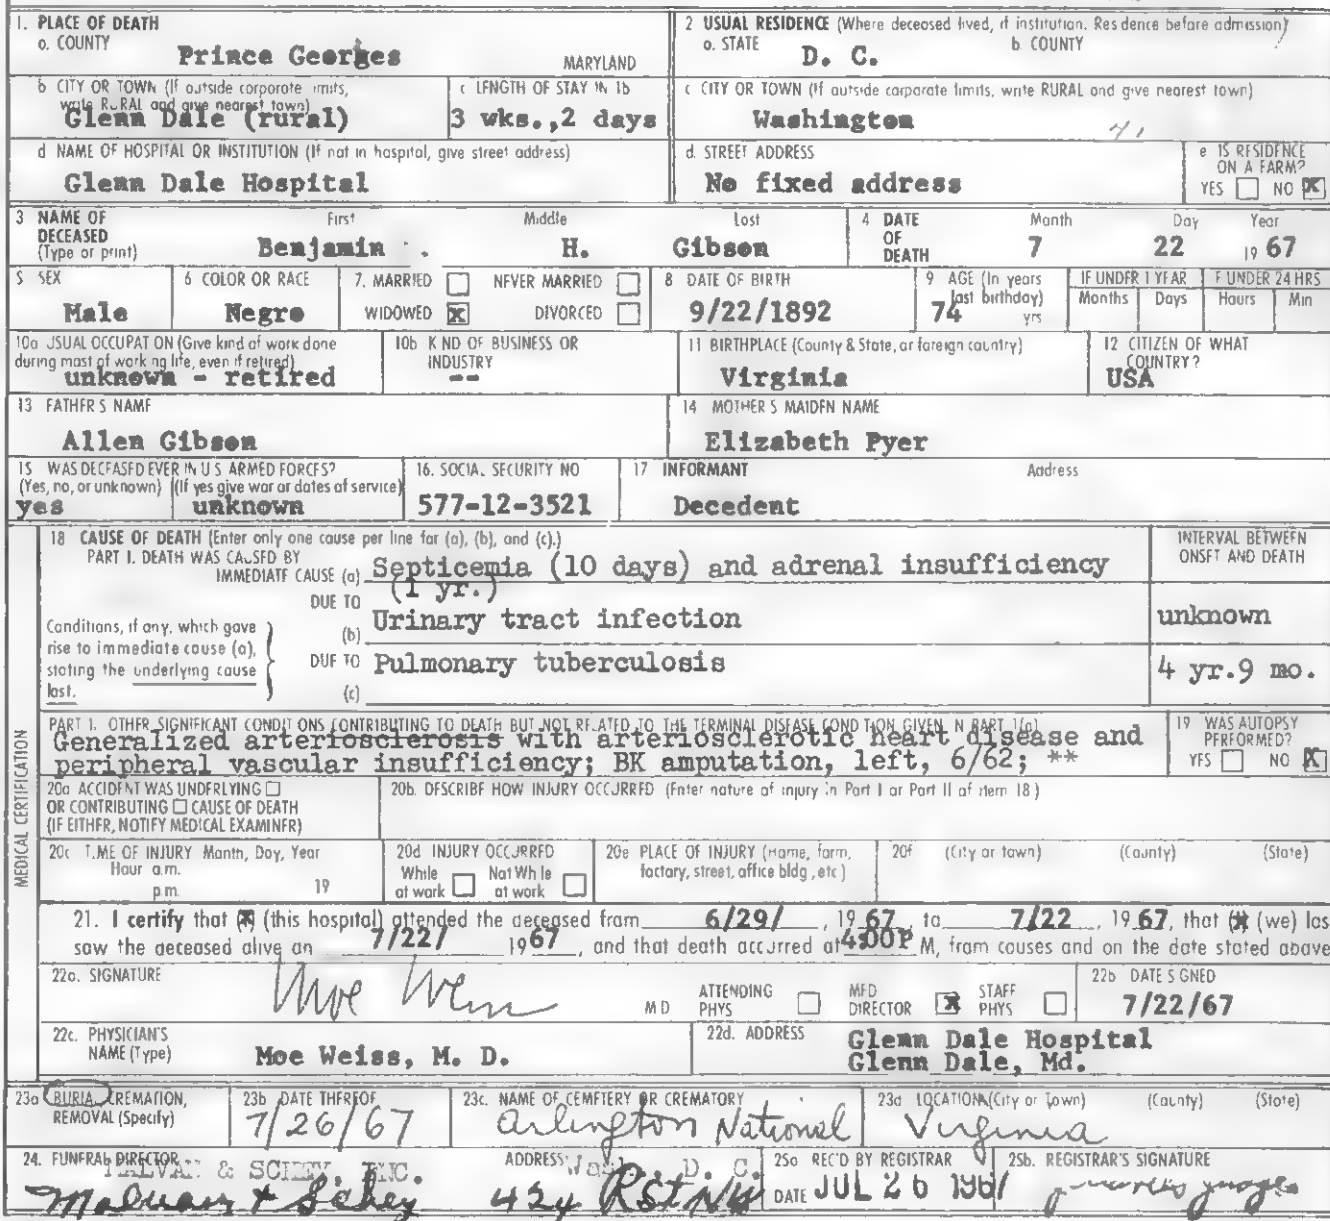 1. PLACE OF DEATH
a. COUNTY
Prince Georges
MARYLAND
2 USUAL RESIDENCE (Where deceased lived, if institution. Residence before admission)
a. STATE
D. C.
b. COUNTY
b CITY OR TOWN (If outside corporate limits, write RURAL and give nearest town)
Glenn Dale (rural)
c LENGTH OF STAY IN 1b
3 wks.,2 days
c CITY OR TOWN (If outside corporate limits, write RURAL and give nearest town)
Washington
d NAME OF HOSPITAL OR INSTITUTION (If not in hospital, give street address)
Glenn Dale Hospital
d. STREET ADDRESS
No fixed address
e IS RESIDENCE ON A FARM?
YES NO X
3 NAME OF DECEASED (Type or print)
First Middle Last
Benjamin H. Gibson
4 DATE OF DEATH
Month Day Year
7 22 19 67
5 SEX
Male
6 COLOR OR RACE
Negro
7. MARRIED NEVER MARRIED
WIDOWED X DIVORCED
8 DATE OF BIRTH
9/22/1892
9 AGE (In years last birthday)
74 yrs
IF UNDER 1 YEAR
Months Days
IF UNDER 24 HRS
Hours Min
10a USUAL OCCUPATION (Give kind of work done during most of working life, even if retired)
unknown - retired
10b KIND OF BUSINESS OR INDUSTRY
--
11 BIRTHPLACE (County & State, or foreign country)
Virginia
12 CITIZEN OF WHAT COUNTRY?
USA
13 FATHER'S NAME
Allen Gibson
14 MOTHER'S MAIDEN NAME
Elizabeth Pyer
15 WAS DECEASED EVER IN U S ARMED FORCES?
(Yes, no, or unknown) (If yes give war or dates of service)
yes unknown
16. SOCIAL SECURITY NO
577-12-3521
17 INFORMANT Address
Decedent
MEDICAL CERTIFICATION
18 CAUSE OF DEATH (Enter only one cause per line for (a), (b), and (c).)
PART I. DEATH WAS CAUSED BY
IMMEDIATE CAUSE (a) Septicemia (10 days) and adrenal insufficiency
(1 yr.)
INTERVAL BETWEEN ONSET AND DEATH
Conditions, if any, which gave rise to immediate cause (a), stating the underlying cause last.
DUE TO (b) Urinary tract infection
unknown
DUE TO (c) Pulmonary tuberculosis
4 yr.9 mo.
PART I. OTHER SIGNIFICANT CONDITIONS CONTRIBUTING TO DEATH BUT NOT RELATED TO THE TERMINAL DISEASE CONDITION GIVEN IN PART 1(a)
Generalized arteriosclerosis with arteriosclerotic heart disease and
peripheral vascular insufficiency; BK amputation, left, 6/62; **
19 WAS AUTOPSY PERFORMED?
YES NO X
20a ACCIDENT WAS UNDERLYING
OR CONTRIBUTING CAUSE OF DEATH
(IF EITHER, NOTIFY MEDICAL EXAMINER)
20b. DESCRIBE HOW INJURY OCCURRED (Enter nature of injury in Part I or Part II of item 18)
20c TIME OF INJURY Month, Day, Year
Hour a.m.
p.m. 19
20d INJURY OCCURRED
While at work Not While at work
20e PLACE OF INJURY (Home, farm, factory, street, office bldg, etc)
20f (City or town) (County) (State)
21. I certify that (X) (this hospital) attended the deceased from 6/29/, 19 67, to 7/22, 19 67, that (X) (we) las
saw the deceased alive on 7/22/ 19 67, and that death occurred at 4:00P M, from causes and on the date stated above
22a. SIGNATURE
Moe Weiss
M D
ATTENDING PHYS MED DIRECTOR X STAFF PHYS
22b DATE SIGNED
7/22/67
22c. PHYSICIAN'S NAME (Type)
Moe Weiss, M. D.
22d. ADDRESS
Glenn Dale Hospital
Glenn Dale, Md.
23a BURIAL, CREMATION, REMOVAL (Specify)
23b DATE THEREOF
7/26/67
23c. NAME OF CEMETERY OR CREMATORY
Arlington National
23d LOCATION (City or Town) (County) (State)
Virginia
24. FUNERAL DIRECTOR
MALVAN & SCHEY, INC.
Malvan & Schey
ADDRESS
Wash., D. C.
424 R St NW
25a REC'D BY REGISTRAR
DATE JUL 26 1967
25b. REGISTRAR'S SIGNATURE